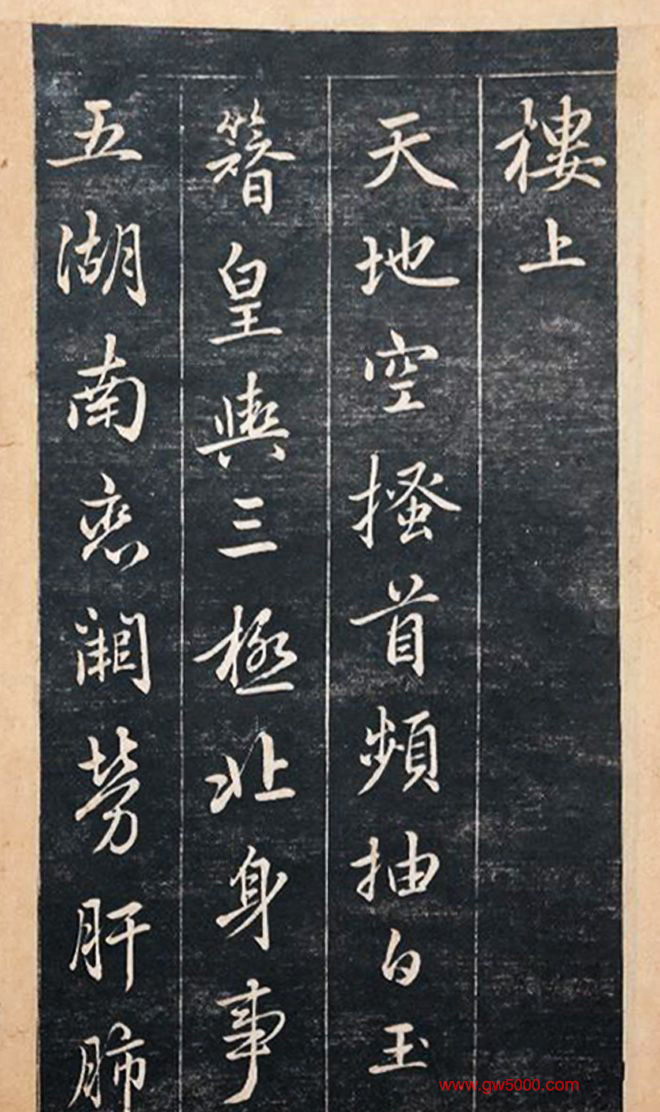 樓上
天地空搔首頻抽白玉
簪皇輿三極北身事
五湖南戀闕勞肝肺
www.gw5000.com